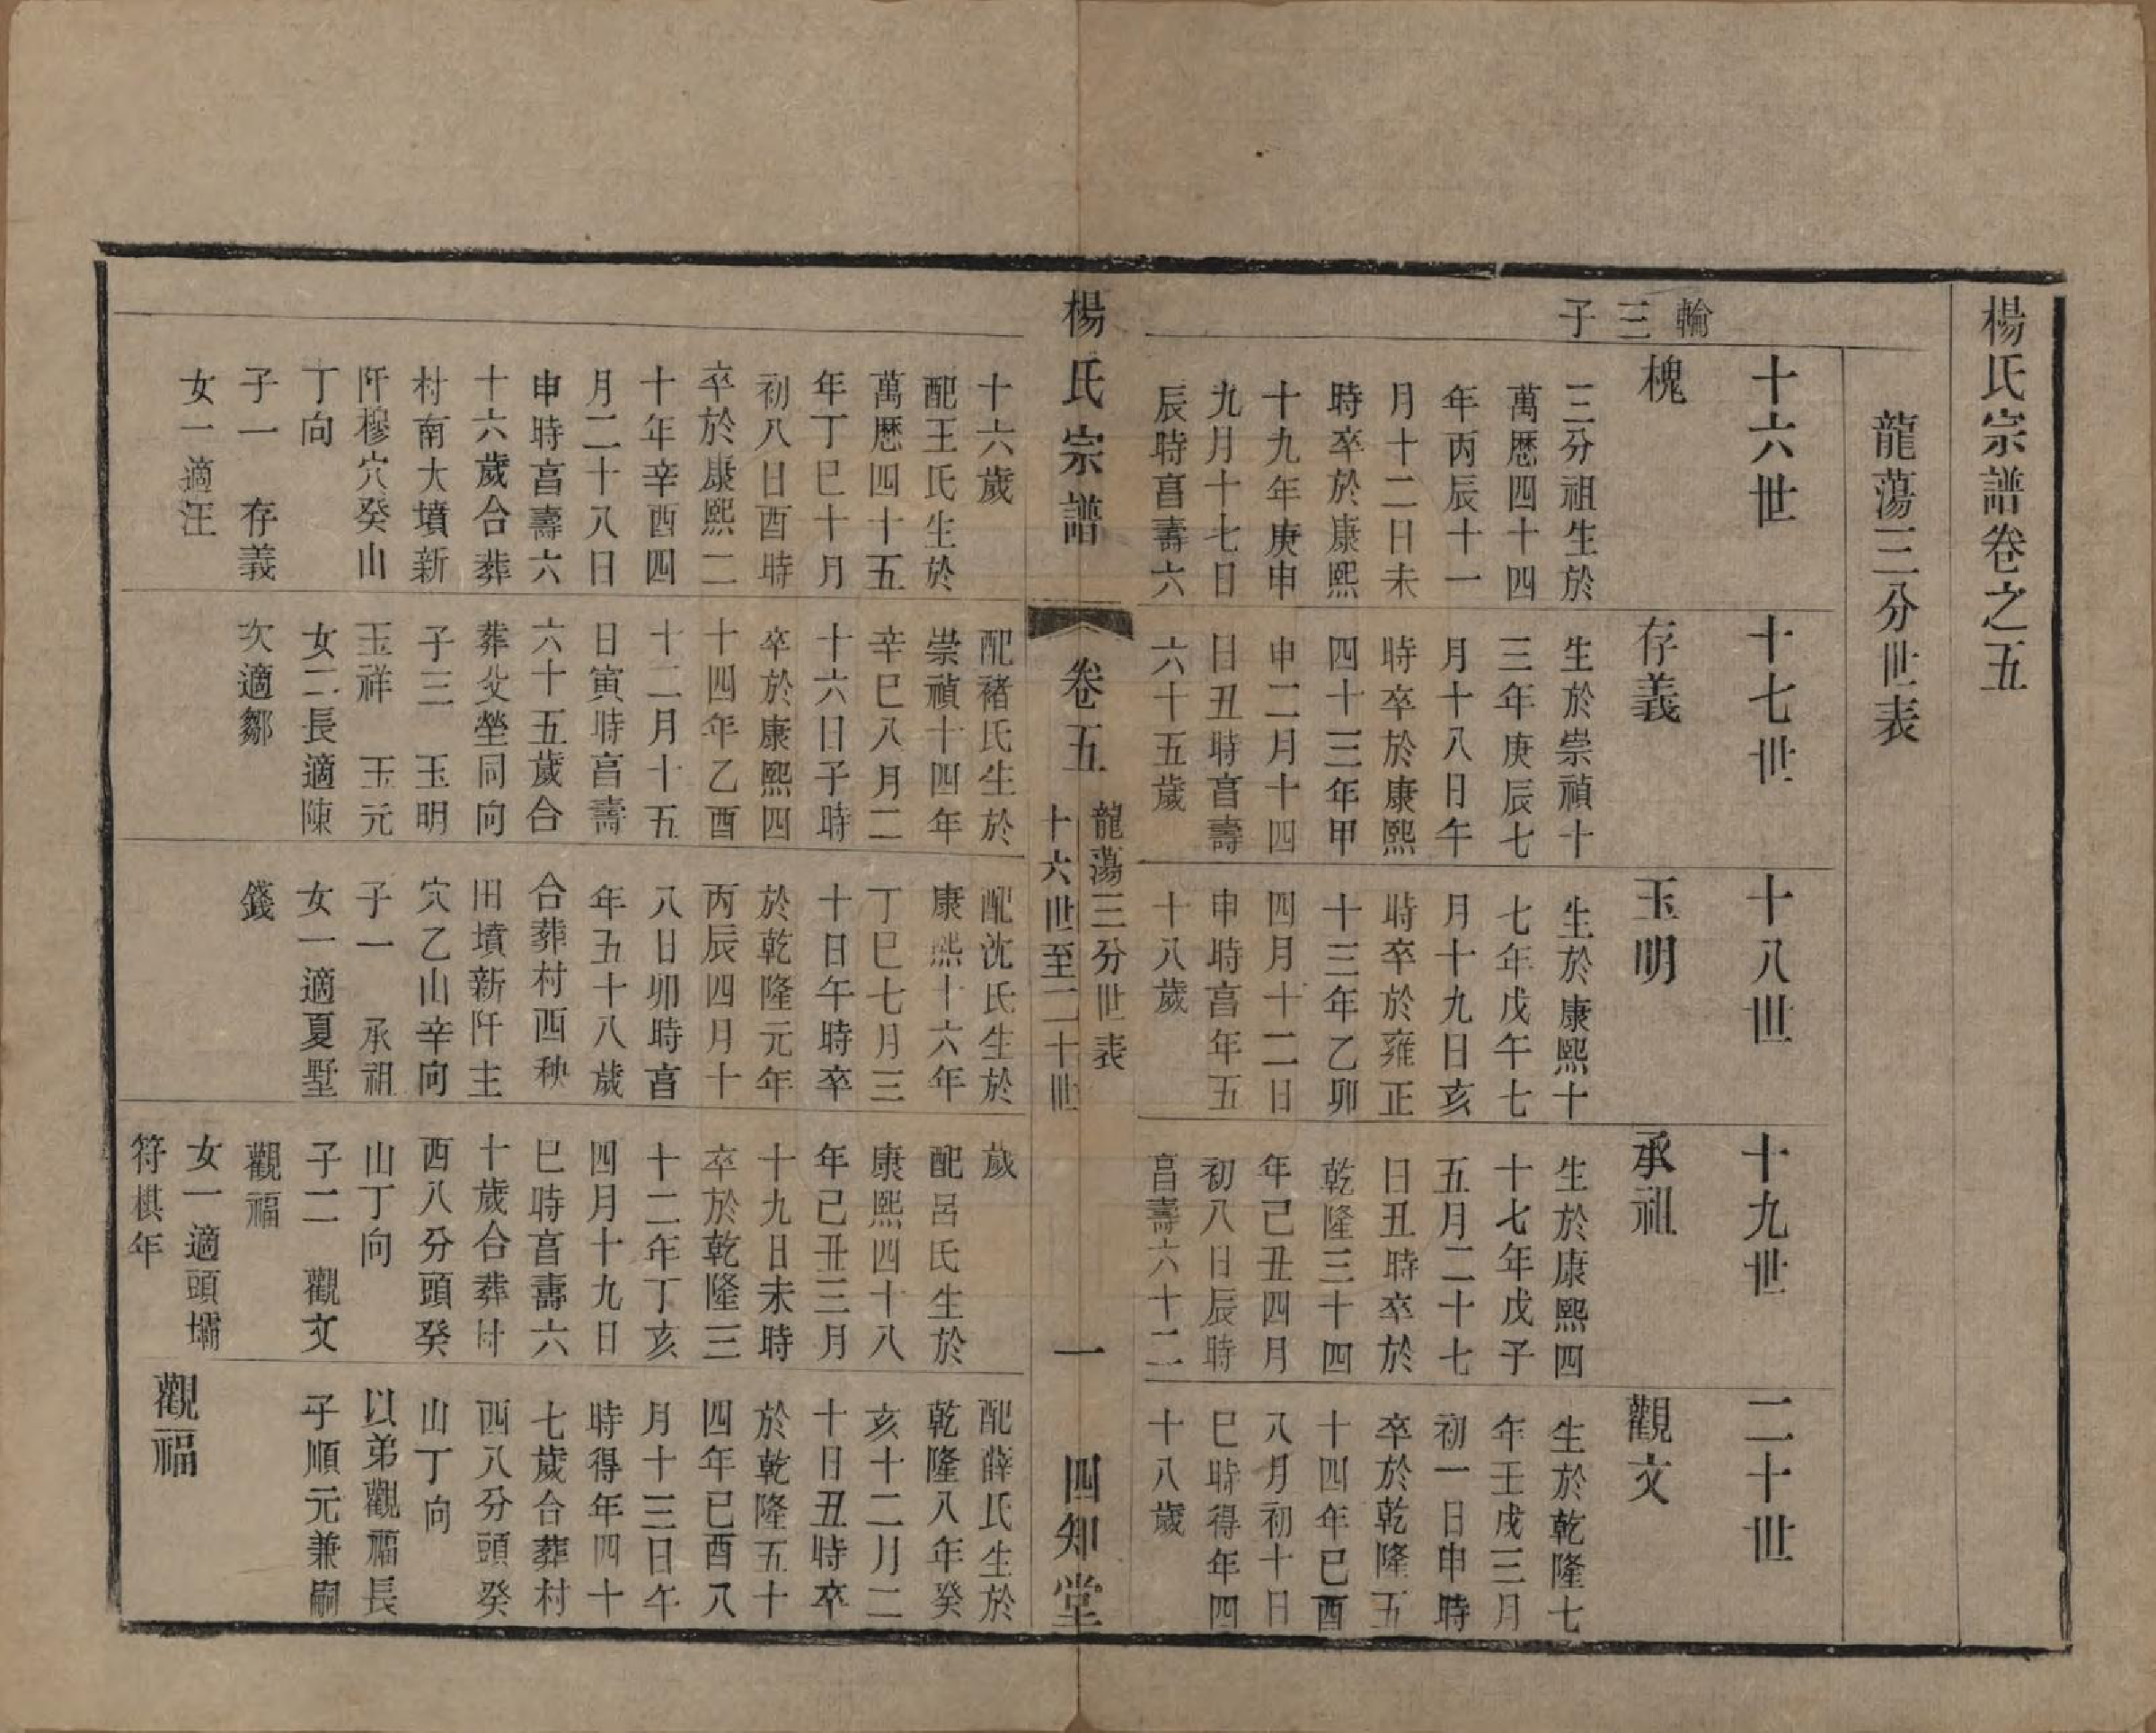 楊氏宗譜卷之五
龍蕩三分世表
輪三子
十六世
槐
三分祖生於
萬厯四十四
年丙辰十一
月十二日未
時卒於康熙
十九年庚申
九月十七日
辰時亯壽六
十六歲
配王氏生於
萬厯四十五
年丁巳十月
初八日酉時
卒於康熙二
十年辛酉四
月二十八日
申時亯壽六
十六歲合葬
村南大墳新
阡穆穴癸山
丁向
子一 存義
女一適汪
十七世
存義
生於崇禎十
三年庚辰七
月十八日午
時卒於康熙
四十三年甲
申二月十四
日丑時亯壽
六十五歲
配褚氏生於
崇禎十四年
辛巳八月二
十六日子時
卒於康熙四
十四年乙酉
十二月十五
日寅時亯壽
六十五歲合
葬父塋同向
子三 玉明
玉祥 玉元
女二長適陳
次適鄒
十八世
玉明
生於康熙十
七年戊午七
月十九日亥
時卒於雍正
十三年乙卯
四月十二日
申時亯年五
十八歲
配沈氏生於
康熙十六年
丁巳七月三
十日午時卒
於乾隆元年
丙辰四月十
八日卯時亯
年五十八歲
合葬村西秧
田墳新阡主
穴乙山辛向
子一 承祖
女一適夏墅
錢
十九世
承祖
生於康熙四
十七年戊子
五月二十七
日丑時卒於
乾隆三十四
年己丑四月
初八日辰時
亯壽六十二
歲
配呂氏生於
康熙四十八
年己丑三月
十九日未時
卒於乾隆三
十二年丁亥
四月十九日
巳時亯壽六
十歲合葬村
西八分頭癸
山丁向
子二 觀文
觀福
女一適頭壩
符棋年
二十世
觀文
生於乾隆七
年壬戌三月
初一日申時
卒於乾隆五
十四年己酉
八月初十日
巳時得年四
十八歲
配薛氏生於
乾隆八年癸
亥十二月二
十日丑時卒
於乾隆五十
四年己酉八
月十三日午
時得年四十
七歲合葬村
西八分頭癸
山丁向
以弟觀福長
子順元兼嗣
觀福
楊氏宗譜
卷五
龍蕩三分世表
十六世至二十世
一
四知堂